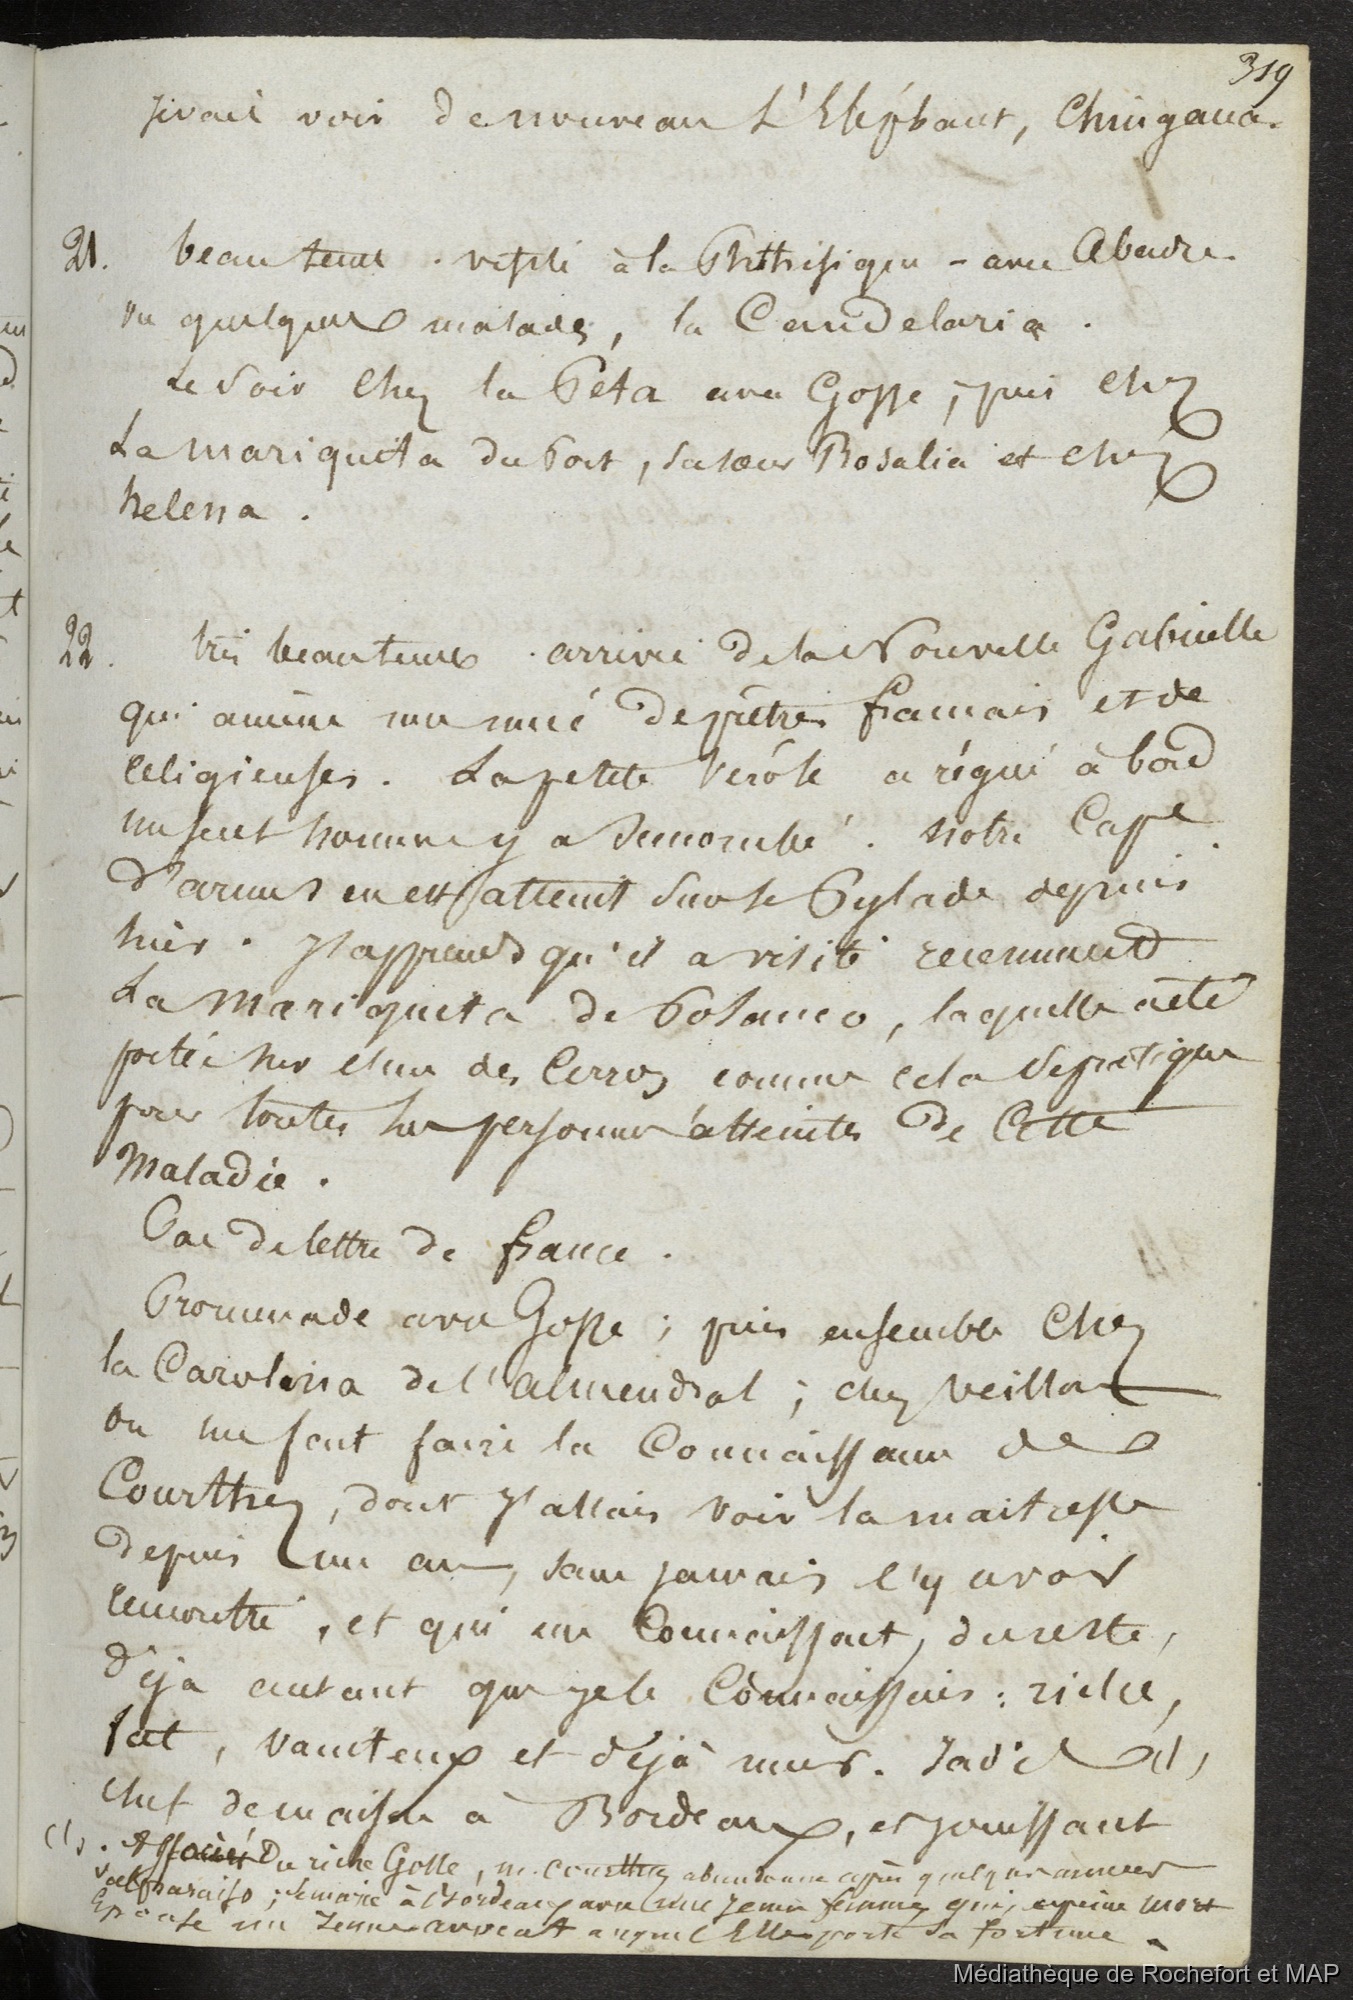 319
Jirail voir de nouveau L'Eléphant, Chingana.
21. beau tems . visite à la Phthisique - avec Abadie.
vu quelques malades, la Candelaria .
Le Soir chez la Peta avec Gosse, puis chez
La mariquita du Port, Sa sœur Rosalia et chez
helena .
22. très beau tems . arrivée de la Nouvelle Gabrielle
qui amène une nuée de prêtres français et de
religieuses . La petite Vérole a régné à bord
un seul homme y a Succombé . Notre Cape
d'armes en est atteint Sur le Pylade depuis
hier . J'apprends qu'il a visité recemment
La Mariquita de Polanco, laquelle a été
portée hier chez des Cerros comme cela Se pratique
pour toutes les personnes atteintes de Cette
Maladie .
Pas de lettre de france .
Promenade avec Gosse ; puis ensemble Chez
la Carolina de l'almendral ; chez Veillon
on me fait faire la Connaissance de
Courthez, dont J'allais voir la maitresse
depuis un an, sans jamais l'y avoir
rencontré, et qui me Connaissait, du reste,
déjà autant que je le Connaissais : riche,
fat, vaniteux et déjà mur. Jadis (1)
chef de maison à Bordeaux, et jouissant
(1). Associé Du riche Gosse, m. Courthez abandonne après quelques années
Valparaiso ; Se marie à Bordeaux avec une jeune femme qui, à peine mort
Epouse un Jeune avocat auquel Elle porte Sa fortune .
Médiathèque de Rochefort et MAP